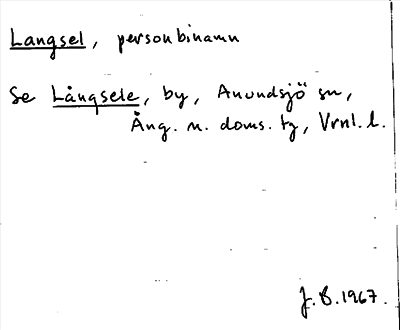 Langsel, personbinamn
Se Långsele, by, Anundsjö sn,
Ång. n. doms. tg, Vrnl. l.
J.B. 1967.